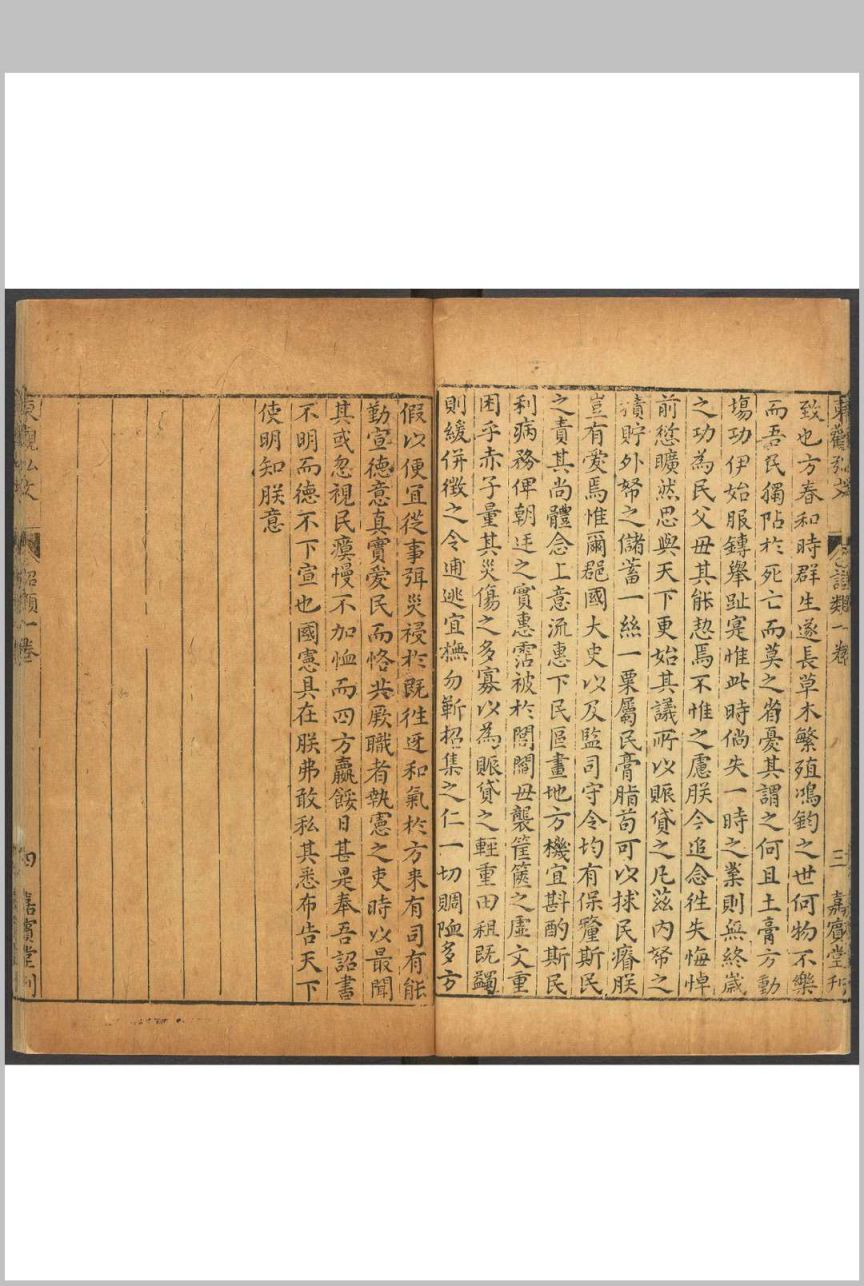 東觀弘文
詔類一卷
三
嘉賓堂刊
致也方春和時群生遂長草木繁殖鴻鈞之世何物不樂
而吾民獨阽於死亡而莫之省憂其謂之何且土膏方動
塲功伊始服鏄舉趾寔惟此時倘失一時之業則無終歳
之功為民父毋其能恝焉不惟之慮朕今追念徃失悔悼
前愆曠然思與天下更始其議所以賑貸之凡茲内帑之
積貯外帑之儲蓄一絲一粟屬民膏脂苟可以捄民瘠朕
豈有愛焉惟爾郡國大吏以及監司守令均有保釐斯民
之責其尚體念上意流惠下民區畫地方機宜斟酌斯民
利病務俾朝廷之實惠霑被於閭閻毋襲筐篋之虛文重
困乎赤子量其災傷之多寡以為賑貸之輕重田租既蠲
則緩併徴之令逋逃宜撫勿靳招集之仁一切賙䘏多方
假以便宜從事弭災祲於既徃迓和氣於方来有司有能
勤宣德意真實愛民而恪共厥職者執憲之吏時以最聞
其或忽視民瘼慢不加恤而四方羸餒日甚是奉吾詔書
不明而德不下宣也國憲具在朕弗敢私其悉布告天下
使明知朕意
東觀弘文
詔類一卷
四
嘉賓堂刊